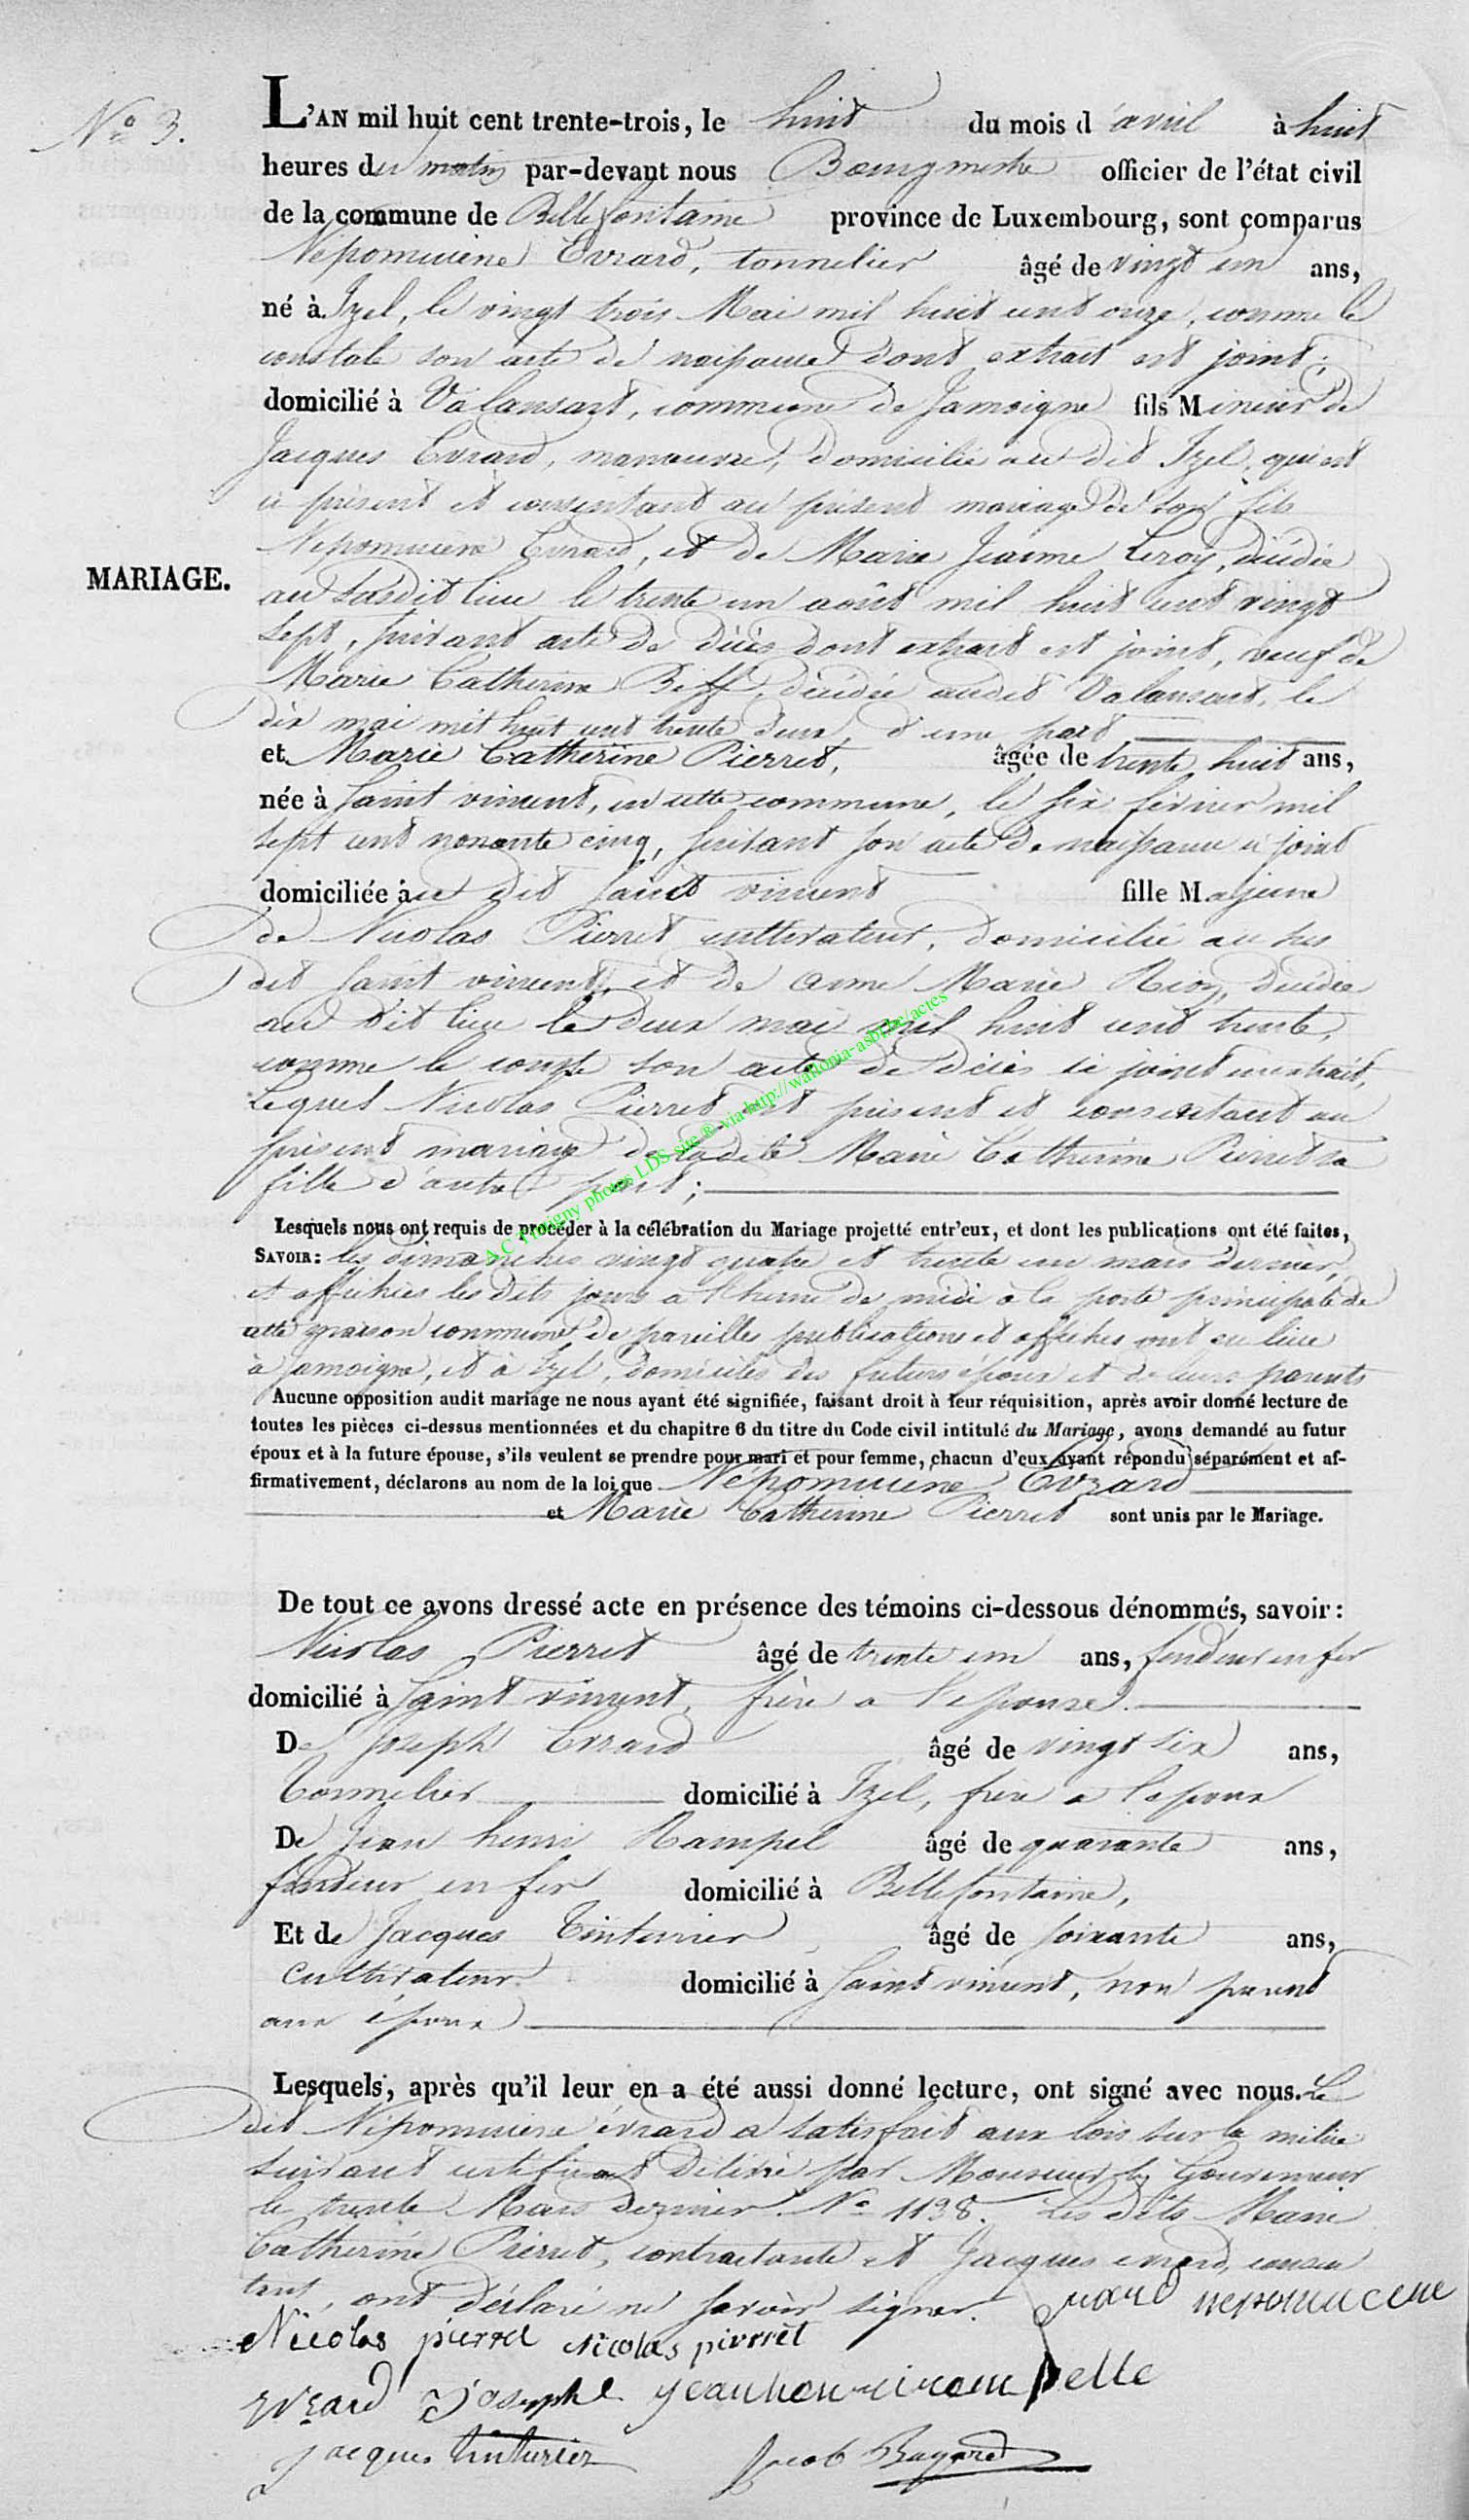 N° 3.
L'AN mil huit cent trente-trois, le huit du mois d'avril à huit
heures du matin par-devant nous Bourgmestre officier de l'état civil
de la commune de Bellefontaine province de Luxembourg, sont comparus
Népomucène Evrard, tonnelier âgé de vingt un ans,
né à Izel, le vingt trois Mai mil huit cent onze, comme le
constate son acte de naissance dont extrait est joint;
domicilié à Valansart, commune de Jamoigne fils Mineur de
Jacques Evrard, manœuvre, domicilié au dit Izel, qui est
ci présent et consentant au présent mariage de son fils
Népomucène Evrard, et de Marie Jeanne Leroy, décédée
MARIAGE.
au susdit lieu le trente un août mil huit cent vingt
sept, suivant acte de décès dont extrait est joint, veuf de
Marie Catherine Biff, décédée audit Valansart, le
dix mai mil huit cent trente deux, d'une part
et Marie Catherine Pierret, âgée de trente huit ans,
née à Saint vincent, en cette commune, le six février mil
sept cent nonante cinq, suivant son acte de naissance ci joint
domiciliée au dit Saint vincent fille Majeure
de Nicolas Pierret cultivateur, domicilié au sus
dit Saint vincent, et de anne Marie Rion, décédée
au dit lieu le deux mai mil huit cent trente,
comme le conste son acte de décès ci joint en extrait,
Lequel Nicolas Pierret est présent et consentant au
présent mariage de ladite Marie Catherine Pierret sa
fille d'autre part;
A.C Tintigny photos LDS site ® via http://wallonia-asbl.be/actes
Lesquels nous ont requis de procéder à la célébration du Mariage projetté entr'eux, et dont les publications ont été faites,
SAVOIR: les dimanches vingt quatre et trente un mars dernier,
et affichées lesdits jours a l'heure de midi à la porte principale de
cette maison commune de pareilles publications et affiches ont eu lieu
à Jamoigne, et à Izel, domiciles des futurs époux et de leurs parents
Aucune opposition audit mariage ne nous ayant été signifiée, faisant droit à leur réquisition, après avoir donné lecture de
toutes les pièces ci-dessus mentionnées et du chapitre 6 du titre du Code civil intitulé du Mariage, avons demandé au futur
époux et à la future épouse, s'ils veulent se prendre pour mari et pour femme, chacun d'eux ayant répondu séparément et af-
firmativement, déclarons au nom de la loi que Népomucène Evrard
et Marie Catherine Pierret sont unis par le Mariage.
De tout ce avons dressé acte en présence des témoins ci-dessous dénommés, savoir:
Nicolas Pierret âgé de trente un ans, fondeur en fer
domicilié à Saint vincent, frère a l'epouse.
De Joseph Evrard âgé de vingt six ans,
Tonnelier domicilié à Izel, frère a l'epoux
De Jean henri Rampel âgé de quarante ans,
fondeur en fer domicilié à Bellefontaine,
Et de Jacques Tinturier âgé de soixante ans,
cultivateur domicilié à Saint vincent, non parent
aux époux
Lesquels, après qu'il leur en a été aussi donné lecture, ont signé avec nous. Le
dit Népomucène évrard a satisfait aux lois sur la milice
suivant certificat délivré par Monsieur le Gouverneur
le trente Mars dernier N° 1198. Les dits Marie
Catherine Pierret, contractante et Jacques evrard, consen
tant, ont déclaré ne savoir signer. evrard nepomucene
Nicolas pierret nicolas pierrèt
evrard Joseph jean henri rampelle
jacques tinturier Jacob Bayard